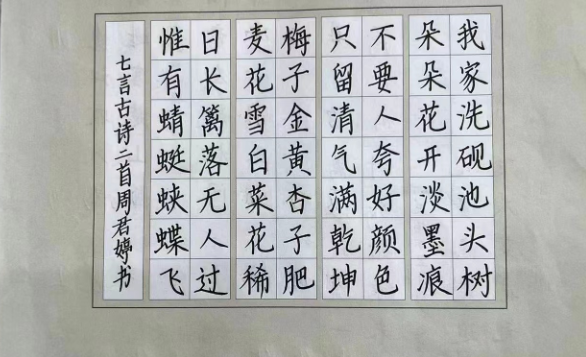 我家洗砚池头树
朵朵花开淡墨痕
不要人夸好颜色
只留清气满乾坤
梅子金黄杏子肥
麦花雪白菜花稀
日长篱落无人过
惟有蜻蜓蛱蝶飞
七言古诗二首周君婷书